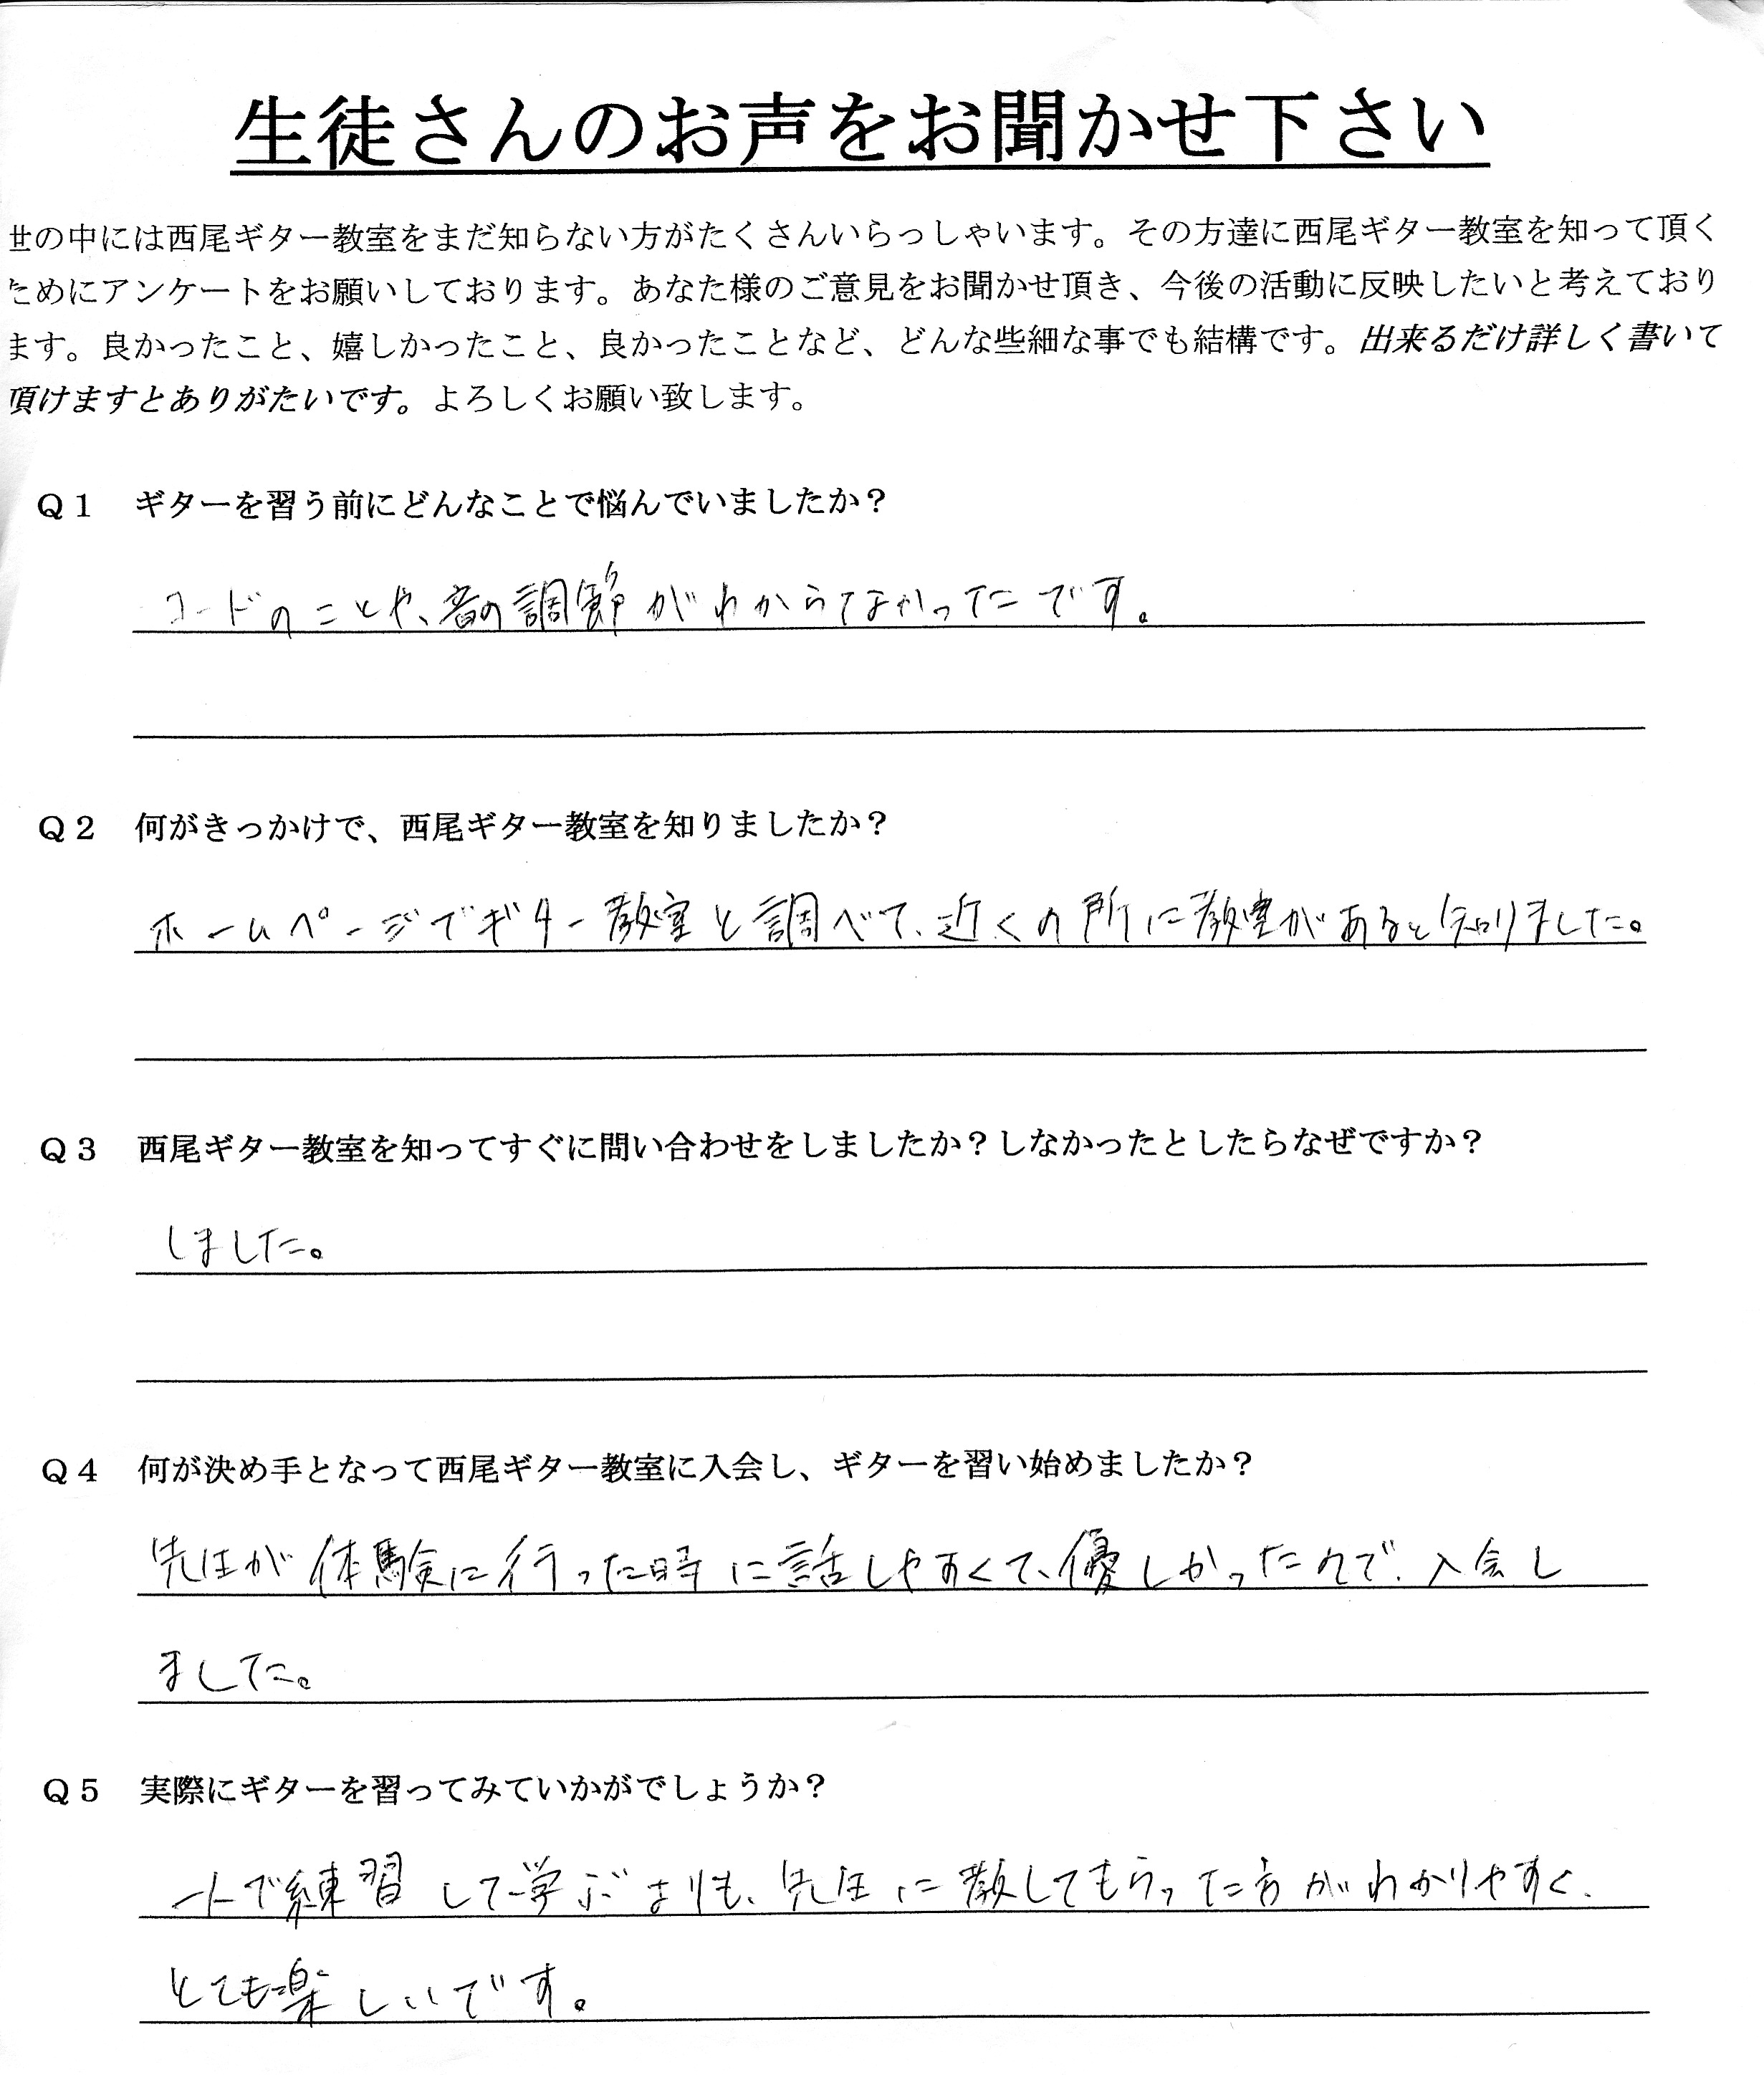 生徒さんのお声をお聞かせ下さい
世の中には西尾ギター教室をまだ知らない方がたくさんいらっしゃいます。その方達に西尾ギター教室を知って頂く
ためにアンケートをお願いしております。あなた様のご意見をお聞かせ頂き、今後の活動に反映したいと考えており
ます。良かったこと、嬉しかったこと、良かったことなど、どんな些細な事でも結構です。出来るだけ詳しく書いて
頂けますとありがたいです。よろしくお願い致します。
Q1 ギターを習う前にどんなことで悩んでいましたか？
コードのことや、音の調節がわからなかったです。
Q2 何がきっかけで、西尾ギター教室を知りましたか？
ホームページでギター教室と調べて、近くの所に教室があると知りました。
Q3 西尾ギター教室を知ってすぐに問い合わせをしましたか？しなかったとしたらなぜですか？
しました。
Q4 何が決め手となって西尾ギター教室に入会し、ギターを習い始めましたか？
先生が体験に行った時に話しやすくて、優しかったので、入会し
ました。
Q5 実際にギターを習ってみていかがでしょうか？
一人で練習して学ぶよりも、先生に教してもらった方がわかりやすく、
とても楽しいです。